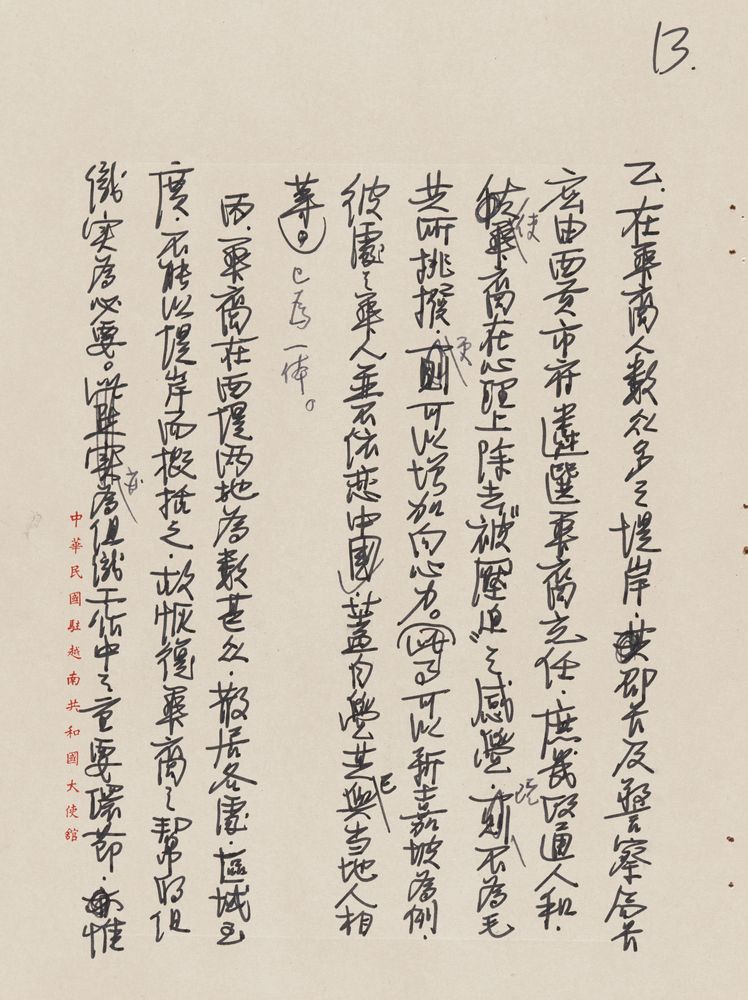 13.
乙、在華裔人數众多之堤岸，其郡长及警察局长
应由西贡市府遴選華裔充任，庶幾政通人和，
使華裔在心理上除去“被壓迫”之感覺，既不為毛
共所挑撥，更可以增加向心力。（此可以新嘉坡為例，
彼處之華人並不依恋中國，蓋自覺其已與当地人相
等）。已為一体。
丙、華裔在西堤两地為數甚众，散居各處，區域至
廣，不能以堤岸而概括之，故恢復華裔之幫的组
織实為必要。此为组織工作中之重要環節，惟
中華民國駐越南共和國大使館